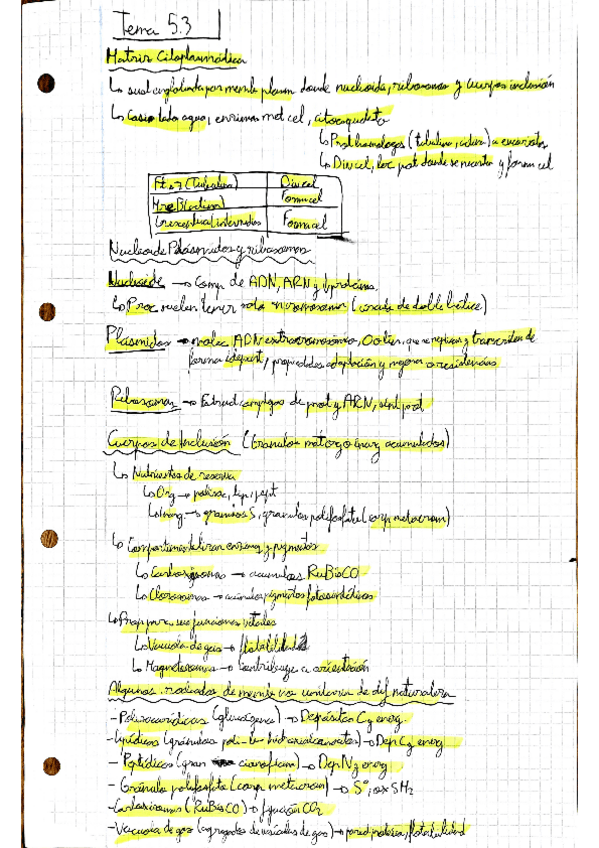 Tema 5.3
Matriz Citoplasmática
↳ sust englobada por memb plasm donde nucleoide, ribosomas y cuerpos inclusión
↳ Casi todo agua, enzimas met cel, citoesqueleto
↳ Prot homólogas (tubulina, actina) a eucariota
↳ Div cel, loc prot donde se necesitan y forma cel
FtsZ (Tubulina) Div cel
MreB (actina) Forma cel
Crescentina (int intermedios) Forma cel
Nucleoide Plásmidos y ribosomas
Nucleoide → Comp de ADN, ARN y proteína
↳ Proc suelen tener solo un cromosoma (cerrado de doble hélice)
Plásmidos → molec ADN extracromosómico, que se replican y transcriben de
forma indepent, propiedades adaptación y mejoran o resistencias
Ribosomas → Estruct complejas de prot y ARN, sint prot
Cuerpos de Inclusión (Gránulos mat orgo inorg acumulados)
↳ Nutrientes de reserva
↳ Org → polisac, lip, pept
↳ Inorg → gránulos S, gránulos polifosfato (corp metacrom)
↳ Compartimentalizan enzimas y pigmentos
↳ Carboxisomas → acumulas RuBisCO
↳ Clorosomas → acúmulos pigmentos fotosintéticos
↳ Prop para sus funciones vitales
↳ Vacuola de gas → flotabilidad
↳ Magnetosomas → Contribuye a orientación
Algunas rodeados de memb no unitaria de dif naturaleza
- Polisacarídicas (glucógeno) → Depósitos C y energ
- Lipídicas (gránulos poli-β-hidroxialcanoatos) → Dep C y energ
- Peptídicas (gran cianoficina) → Dep N y energ
- Gránulo polifosfato (corp metacrom) → S°, ox SH2
- Carboxisomas (RuBisCO) → fijación CO2
- Vacuola de gas (agregados de vesículas de gas) → pared proteica, flotabilidad